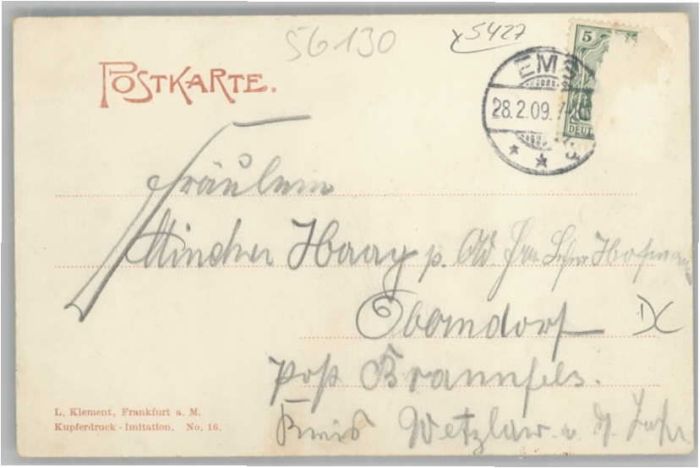 56130
x5427
POSTKARTE.
5
EMS
28.2.09.
DEUT
Fräulein
Minchen Haag p. Ad. Hofmann
Oberndorf
Post Braunfels.
Kreis Wetzlar a. d. Lahn
L. Klement, Frankfurt a. M.
Kupferdruck-Imitation. No. 16.